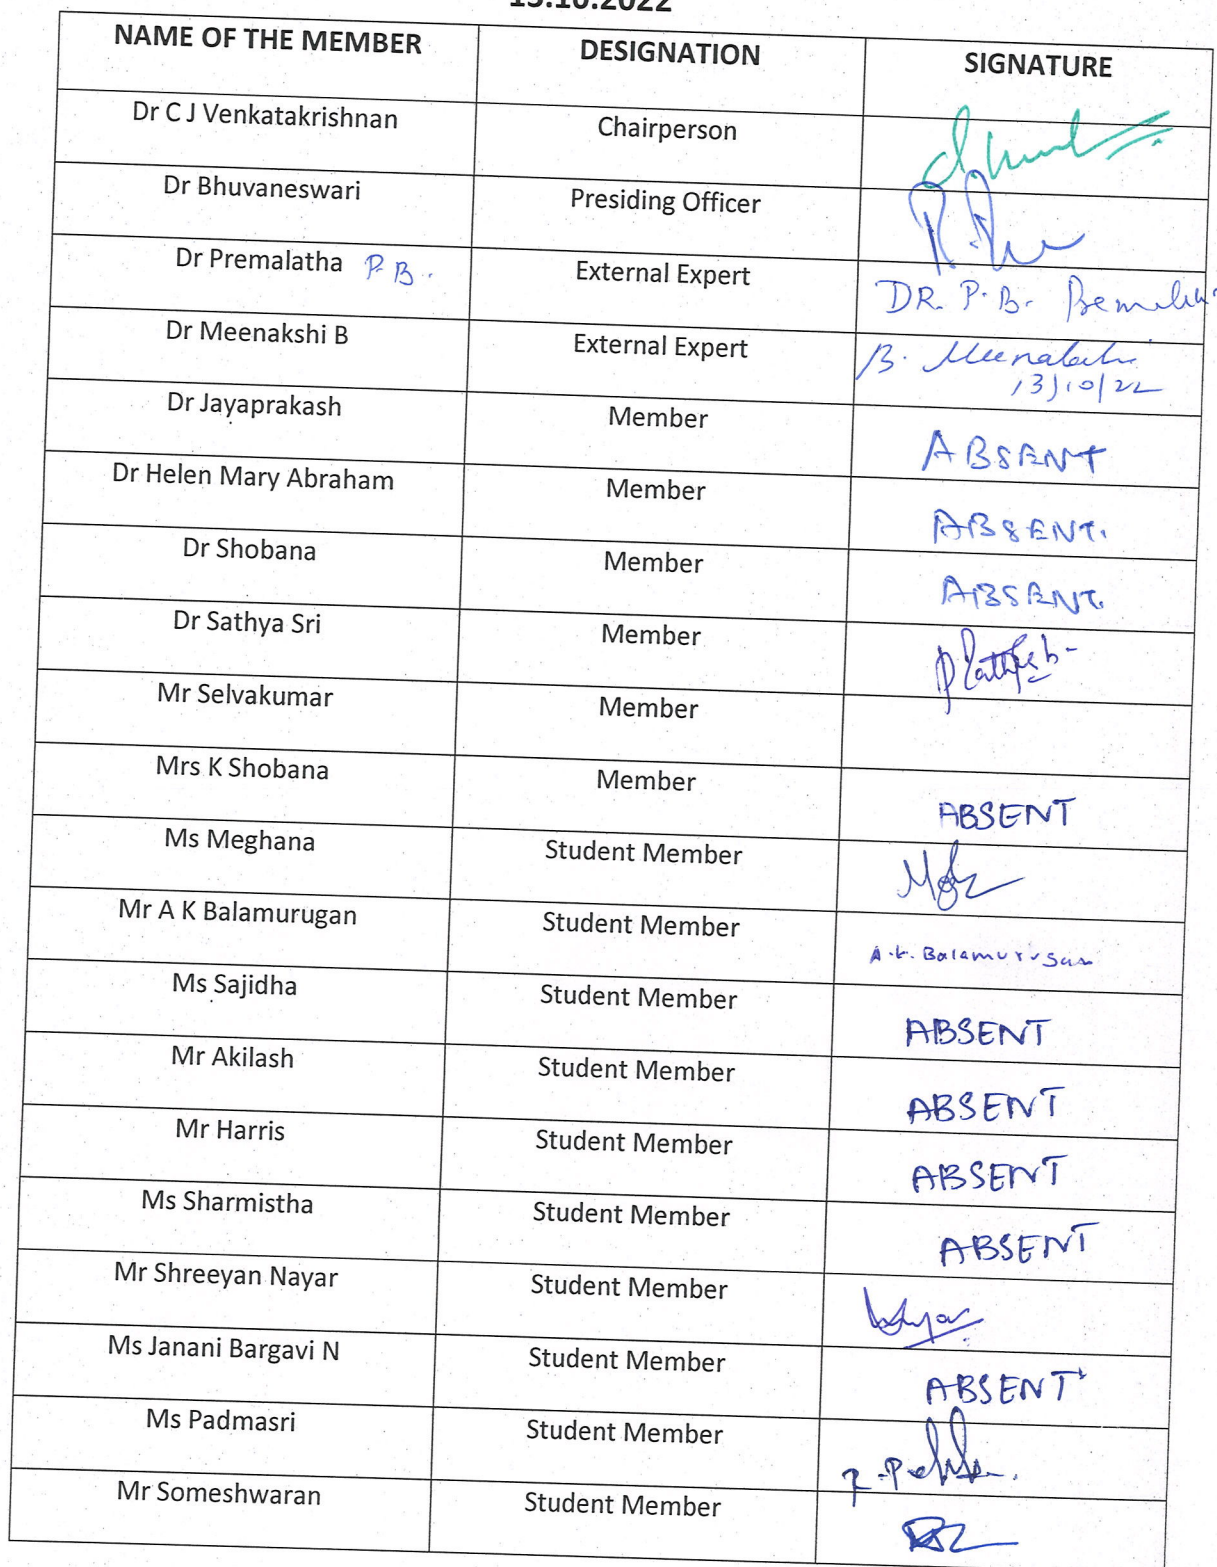 NAME OF THE MEMBER DESIGNATION SIGNATURE
Dr C J Venkatakrishnan Chairperson
Dr Bhuvaneswari Presiding Officer
Dr Premalatha P.B. External Expert DR. P.B.
Dr Meenakshi B External Expert B. Meenakshi
13/10/22
Dr Jayaprakash Member ABSENT
Dr Helen Mary Abraham Member ABSENT.
Dr Shobana Member ABSENT.
Dr Sathya Sri Member
Mr Selvakumar Member
Mrs K Shobana Member ABSENT
Ms Meghana Student Member
Mr A K Balamurugan Student Member A.K. Balamurugan
Ms Sajidha Student Member ABSENT
Mr Akilash Student Member ABSENT
Mr Harris Student Member ABSENT
Ms Sharmistha Student Member ABSENT
Mr Shreeyan Nayar Student Member
Ms Janani Bargavi N Student Member ABSENT
Ms Padmasri Student Member
Mr Someshwaran Student Member